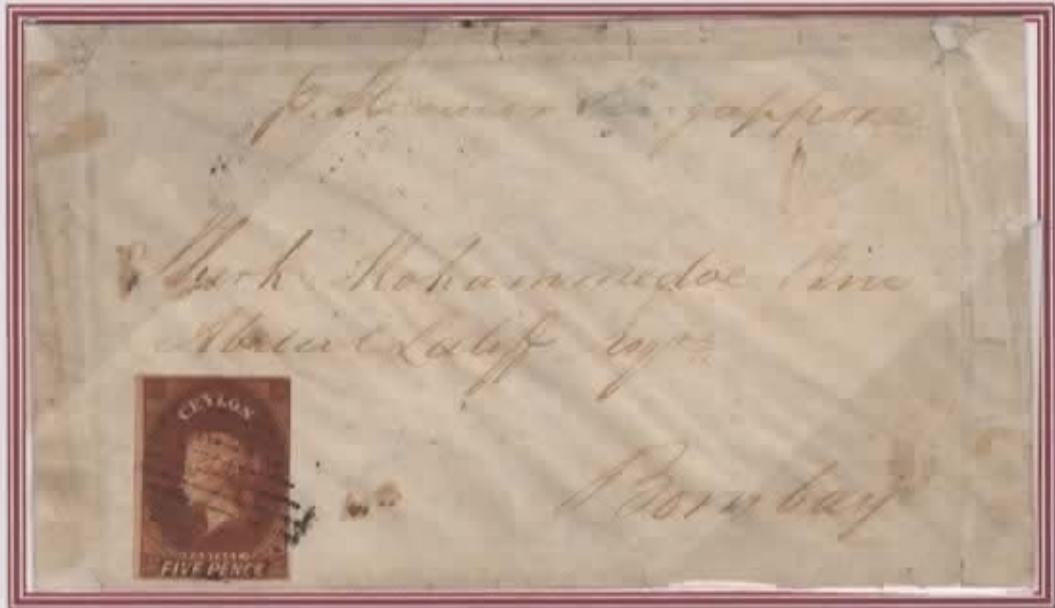 p. Steamer Singappore
Sheik Mohammedoe Bin
Abdul Latiff Esqre
Bombay
CEYLON
POSTAGE
FIVE PENCE